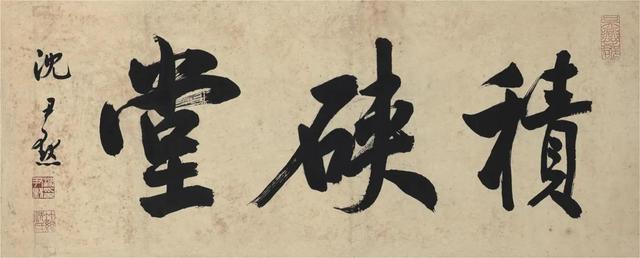 積硤堂
沈尹默